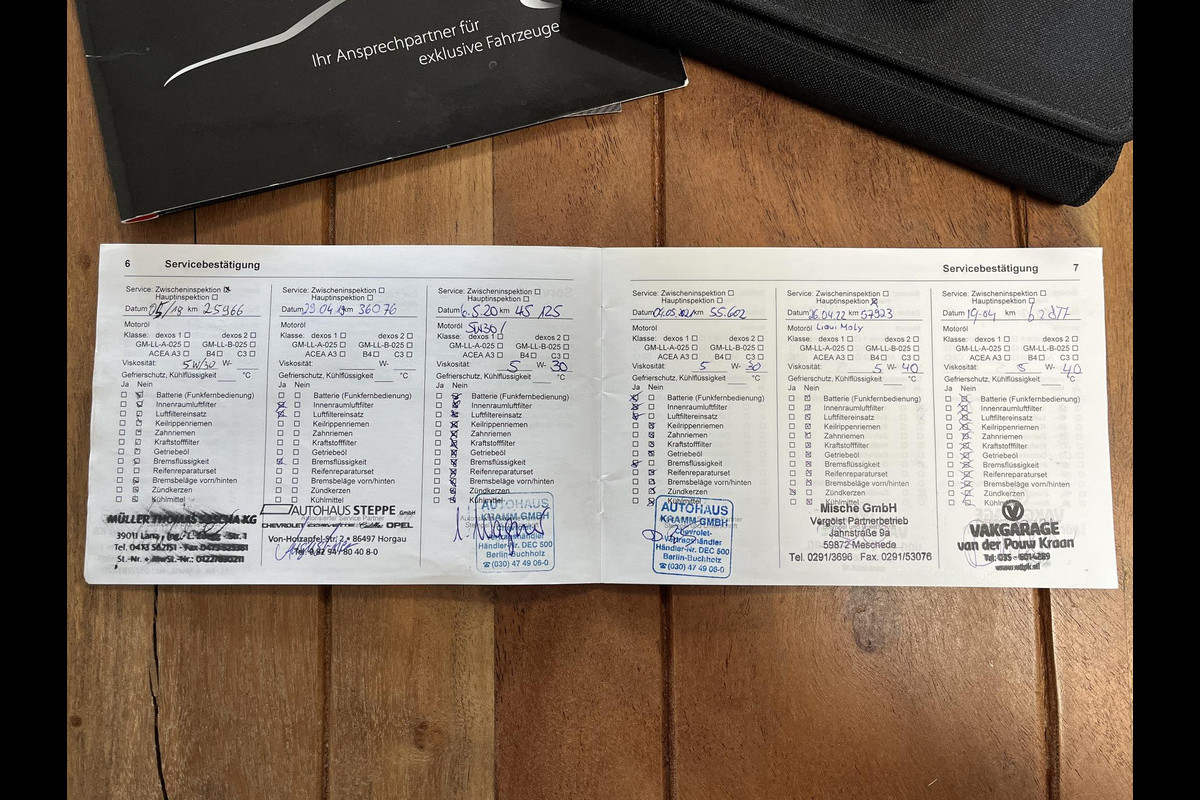 Ihr Ansprechpartner für
exklusive Fahrzeuge
6 Servicebestätigung
Service: Zwischeninspektion
Hauptinspektion
Datum 05/19 km 25966
Motoröl
Klasse: dexos 1 dexos 2
GM-LL-A-025 GM-LL-B-025
ACEA A3 B4 C3
Viskosität: 5W/30 W-
Gefrierschutz, Kühlflüssigkeit °C
Ja Nein
Batterie (Funkfernbedienung)
Innenraumluftfilter
Luftfiltereinsatz
Keilrippenriemen
Zahnriemen
Kraftstofffilter
Getriebeöl
Bremsflüssigkeit
Reifenreparaturset
Bremsbeläge vorn/hinten
Zündkerzen
Kühlmittel
MÜLLER THOMAS KG
39011 Lana
Tel. 0473
St.-Nr. + MwSt.-Nr.:
Service: Zwischeninspektion
Hauptinspektion
Datum 29.04.19 km 36076
Motoröl
Klasse: dexos 1 dexos 2
GM-LL-A-025 GM-LL-B-025
ACEA A3 B4 C3
Viskosität: W-
Gefrierschutz, Kühlflüssigkeit °C
Ja Nein
Batterie (Funkfernbedienung)
Innenraumluftfilter
Luftfiltereinsatz
Keilrippenriemen
Zahnriemen
Kraftstofffilter
Getriebeöl
Bremsflüssigkeit
Reifenreparaturset
Bremsbeläge vorn/hinten
Zündkerzen
Kühlmittel
AUTOHAUS STEPPE GmbH
Autorisierter Service Partner
CHEVROLET CORVETTE OPEL
Von-Holzapfel-Str. 2 • 86497 Horgau
Tel. 0 82 94 / 80 40 8-0
Service: Zwischeninspektion
Hauptinspektion
Datum 6.5.20 km 45 125
Motoröl 5W30
Klasse: dexos 1 dexos 2
GM-LL-A-025 GM-LL-B-025
ACEA A3 B4 C3
Viskosität: 5 W- 30
Gefrierschutz, Kühlflüssigkeit °C
Ja Nein
Batterie (Funkfernbedienung)
Innenraumluftfilter
Luftfiltereinsatz
Keilrippenriemen
Zahnriemen
Kraftstofffilter
Getriebeöl
Bremsflüssigkeit
Reifenreparaturset
Bremsbeläge vorn/hinten
Zündkerzen
Kühlmittel
AUTOHAUS
KRAMM GMBH
Chevrolet-
Vertragshändler
Händler-Nr. DEC 500
Berlin-Buchholz
☎ (030) 47 49 06-0
Servicebestätigung 7
Service: Zwischeninspektion
Hauptinspektion
Datum 04.05.2021 km 55.602
Motoröl
Klasse: dexos 1 dexos 2
GM-LL-A-025 GM-LL-B-025
ACEA A3 B4 C3
Viskosität: 5 W- 30
Gefrierschutz, Kühlflüssigkeit °C
Ja Nein
Batterie (Funkfernbedienung)
Innenraumluftfilter
Luftfiltereinsatz
Keilrippenriemen
Zahnriemen
Kraftstofffilter
Getriebeöl
Bremsflüssigkeit
Reifenreparaturset
Bremsbeläge vorn/hinten
Zündkerzen
Kühlmittel
AUTOHAUS
KRAMM GMBH
Chevrolet-
Vertragshändler
Händler-Nr. DEC 500
Berlin-Buchholz
☎ (030) 47 49 06-0
Service: Zwischeninspektion
Hauptinspektion
Datum 26.04.22 km 57923
Motoröl Liqui Moly
Klasse: dexos 1 dexos 2
GM-LL-A-025 GM-LL-B-025
ACEA A3 B4 C3
Viskosität: 5 W- 40
Gefrierschutz, Kühlflüssigkeit °C
Ja Nein
Batterie (Funkfernbedienung)
Innenraumluftfilter
Luftfiltereinsatz
Keilrippenriemen
Zahnriemen
Kraftstofffilter
Getriebeöl
Bremsflüssigkeit
Reifenreparaturset
Bremsbeläge vorn/hinten
Zündkerzen
Kühlmittel
Mische GmbH
Vergölst Partnerbetrieb
Jahnstraße 9a
59872 Meschede
Tel. 0291/3696 Fax. 0291/53076
Service: Zwischeninspektion
Hauptinspektion
Datum 19-04 km
Motoröl
Klasse: dexos 1 dexos 2
GM-LL-A-025 GM-LL-B-025
ACEA A3 B4 C3
Viskosität: 5 W- 40
Gefrierschutz, Kühlflüssigkeit °C
Ja Nein
Batterie (Funkfernbedienung)
Innenraumluftfilter
Luftfiltereinsatz
Keilrippenriemen
Zahnriemen
Kraftstofffilter
Getriebeöl
Bremsflüssigkeit
Reifenreparaturset
Bremsbeläge vorn/hinten
Zündkerzen
Kühlmittel
VAKGARAGE
van der Pouw Kraan
Tel: 035 - 6014289
www.vdpk.nl